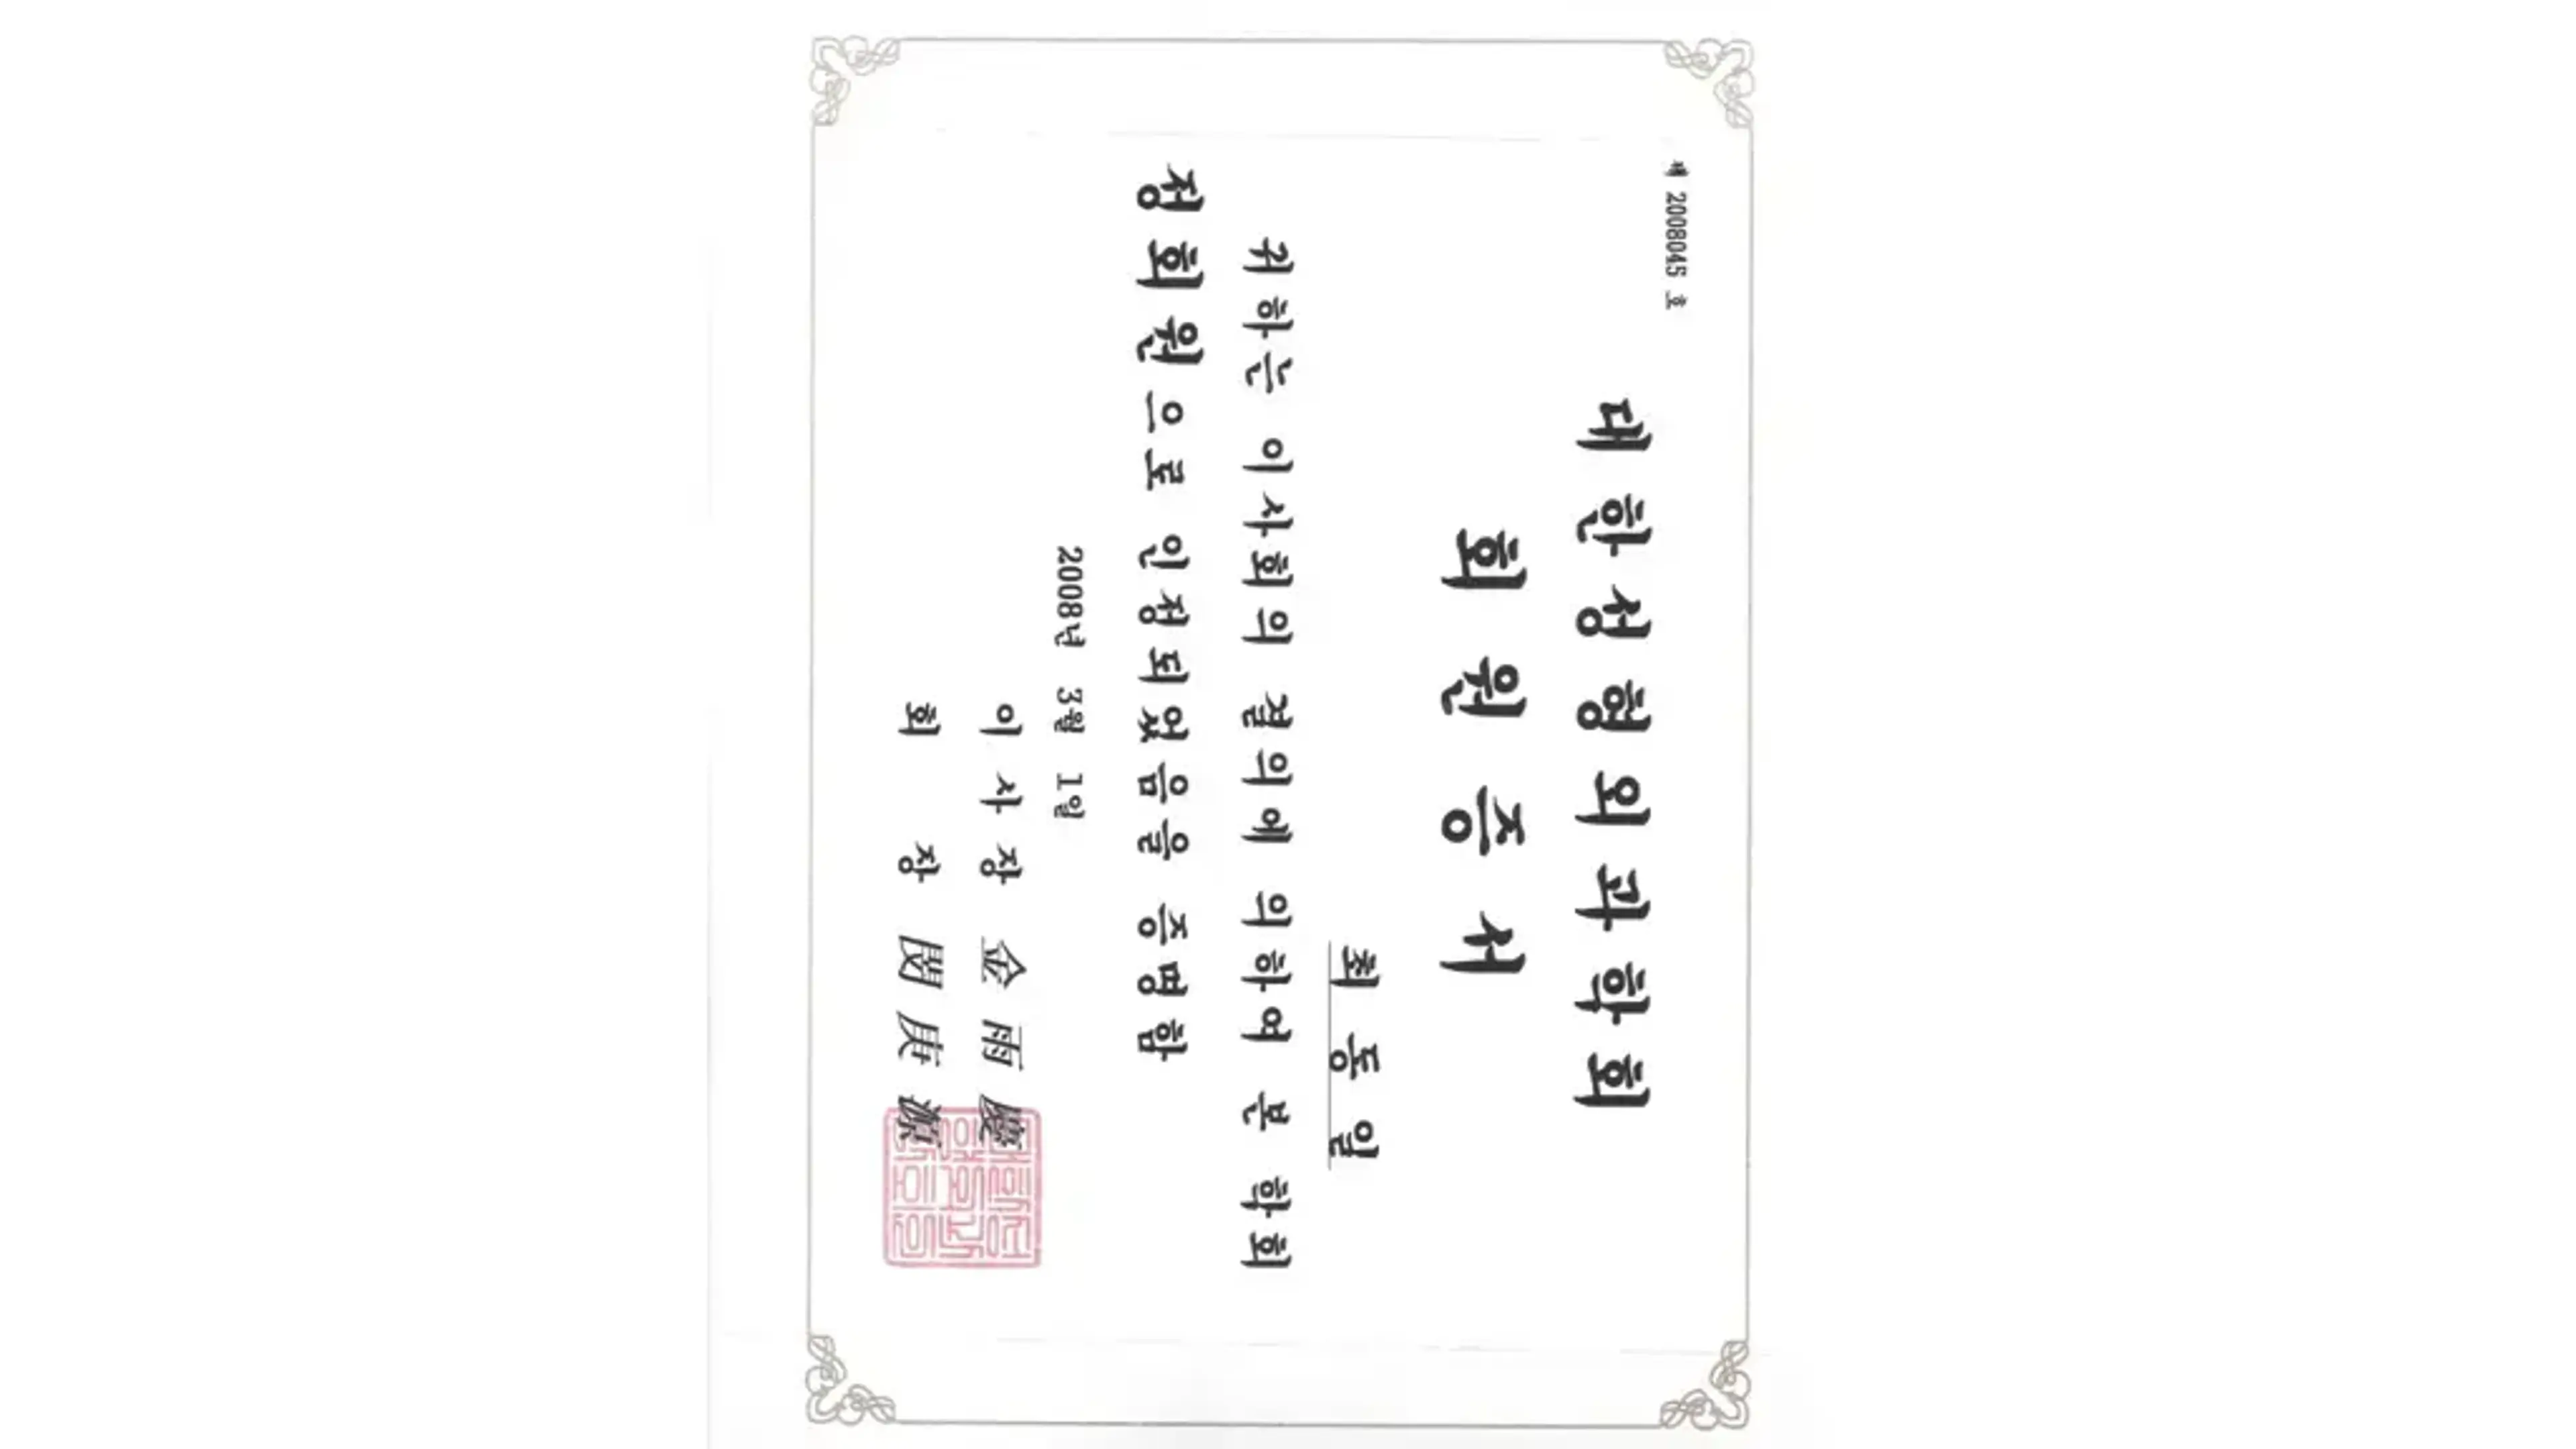 제 2008045 호
대한성형외과학회
회원증서
최동일
귀하는 이사회의 결의에 의하여 본 학회
정회원으로 인정되었음을 증명함
2008년 3월 1일
이사장 金雨慶
회장 閔庚源